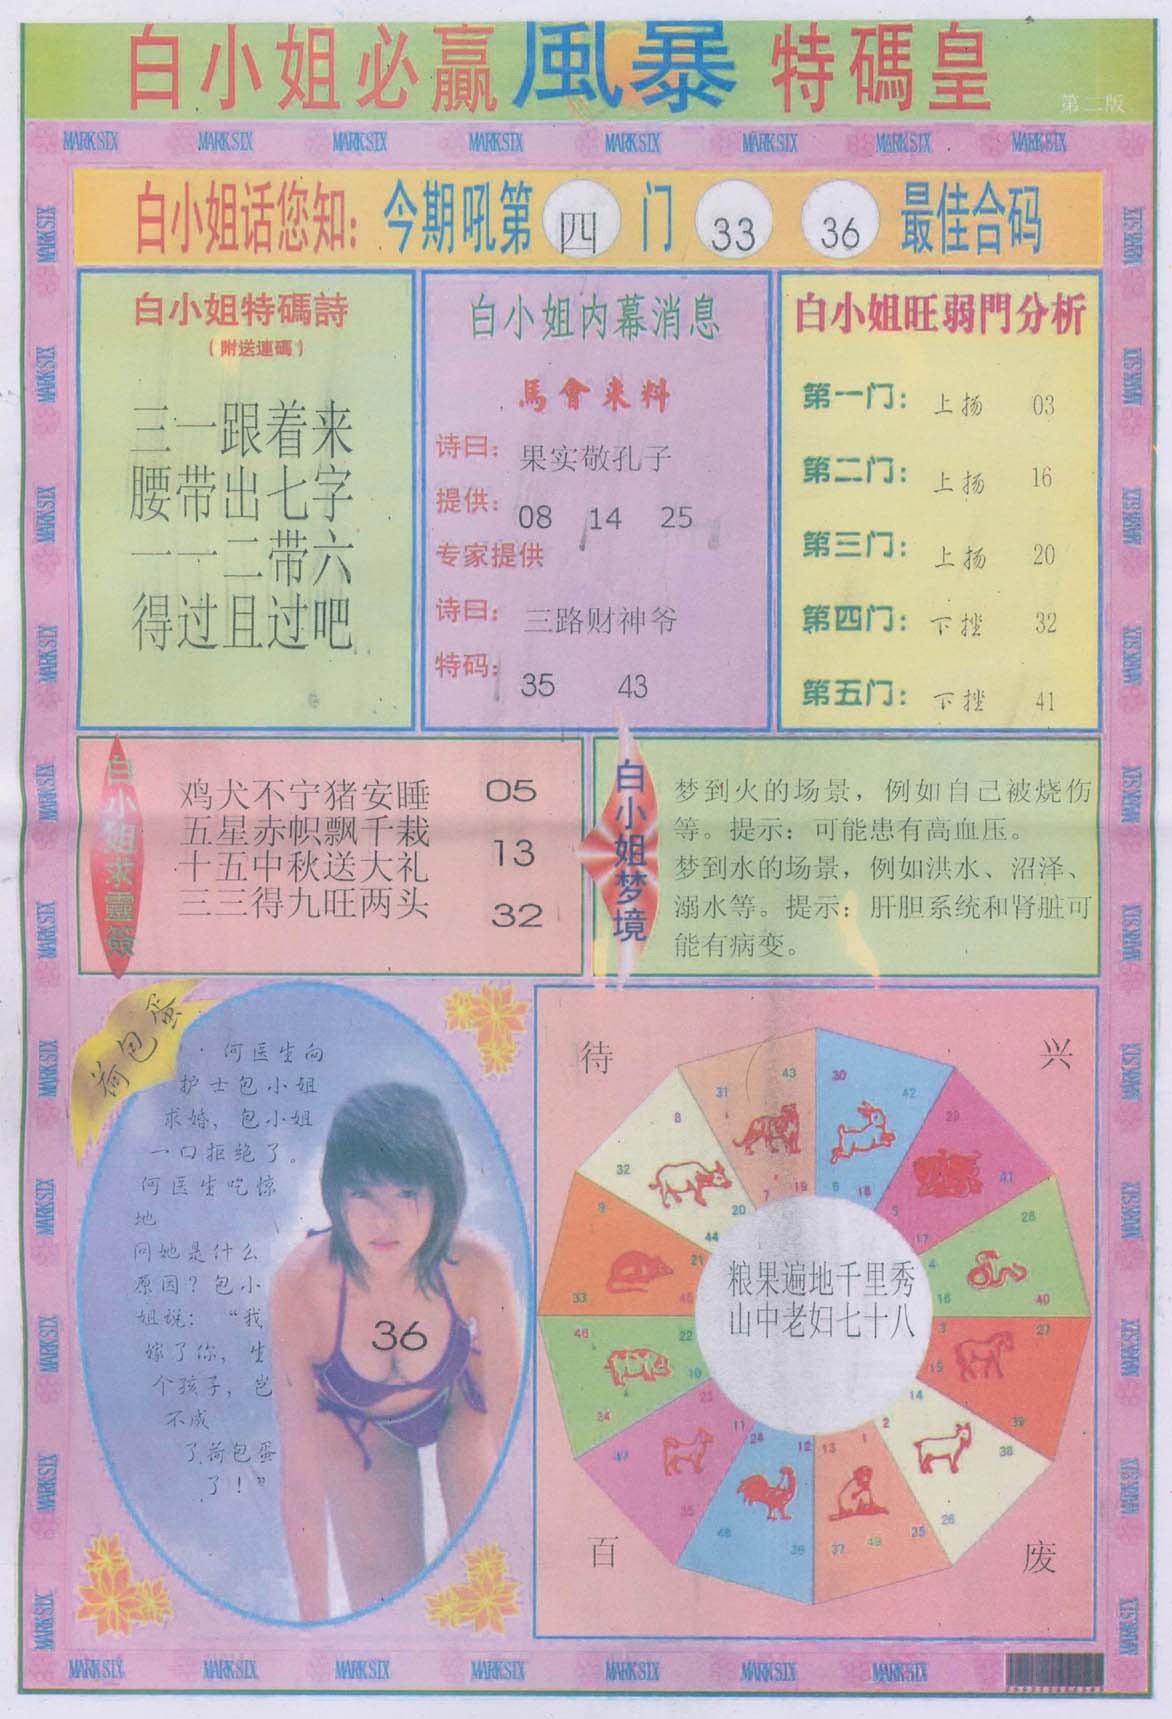 白小姐必贏風暴特碼皇
第二版
MARK SIX MARK SIX MARK SIX MARK SIX MARK SIX MARK SIX MARK SIX MARK SIX
白小姐话您知：今期吼第四门 33 36 最佳合码
白小姐特碼詩
（附送連碼）
三一跟着来
腰带出七字
一一二带六
得过且过吧
白小姐内幕消息
馬會来料
诗曰：果实敬孔子
提供：08 14 25
专家提供
诗曰：三路财神爷
特码：35 43
白小姐旺弱門分析
第一门：上扬 03
第二门：上扬 16
第三门：上扬 20
第四门：下挫 32
第五门：下挫 41
白小姐求靈簽
鸡犬不宁猪安睡 05
五星赤帜飘千栽
十五中秋送大礼 13
三三得九旺两头 32
白小姐梦境
梦到火的场景，例如自己被烧伤
等。提示：可能患有高血压。
梦到水的场景，例如洪水、沼泽、
溺水等。提示：肝胆系统和肾脏可
能有病变。
荷包蛋
何医生向
护士包小姐
求婚，包小姐
一口拒绝了。
何医生吃惊
地
问她是什么
原因？包小
姐说：“我
嫁了你，生
个孩子，岂
不成
了荷包蛋
了！”
36
待
兴
百
废
粮果遍地千里秀
山中老妇七十八
7 19 31 43
6 18 30 42
5 17 29 41
4 16 28 40
3 15 27 39
2 14 26 38
1 13 25 37 49
12 24 36 48
11 23 35 47
10 22 34 46
9 21 33 45
8 20 32 44
MARK SIX MARK SIX MARK SIX MARK SIX MARK SIX MARK SIX MARK SIX